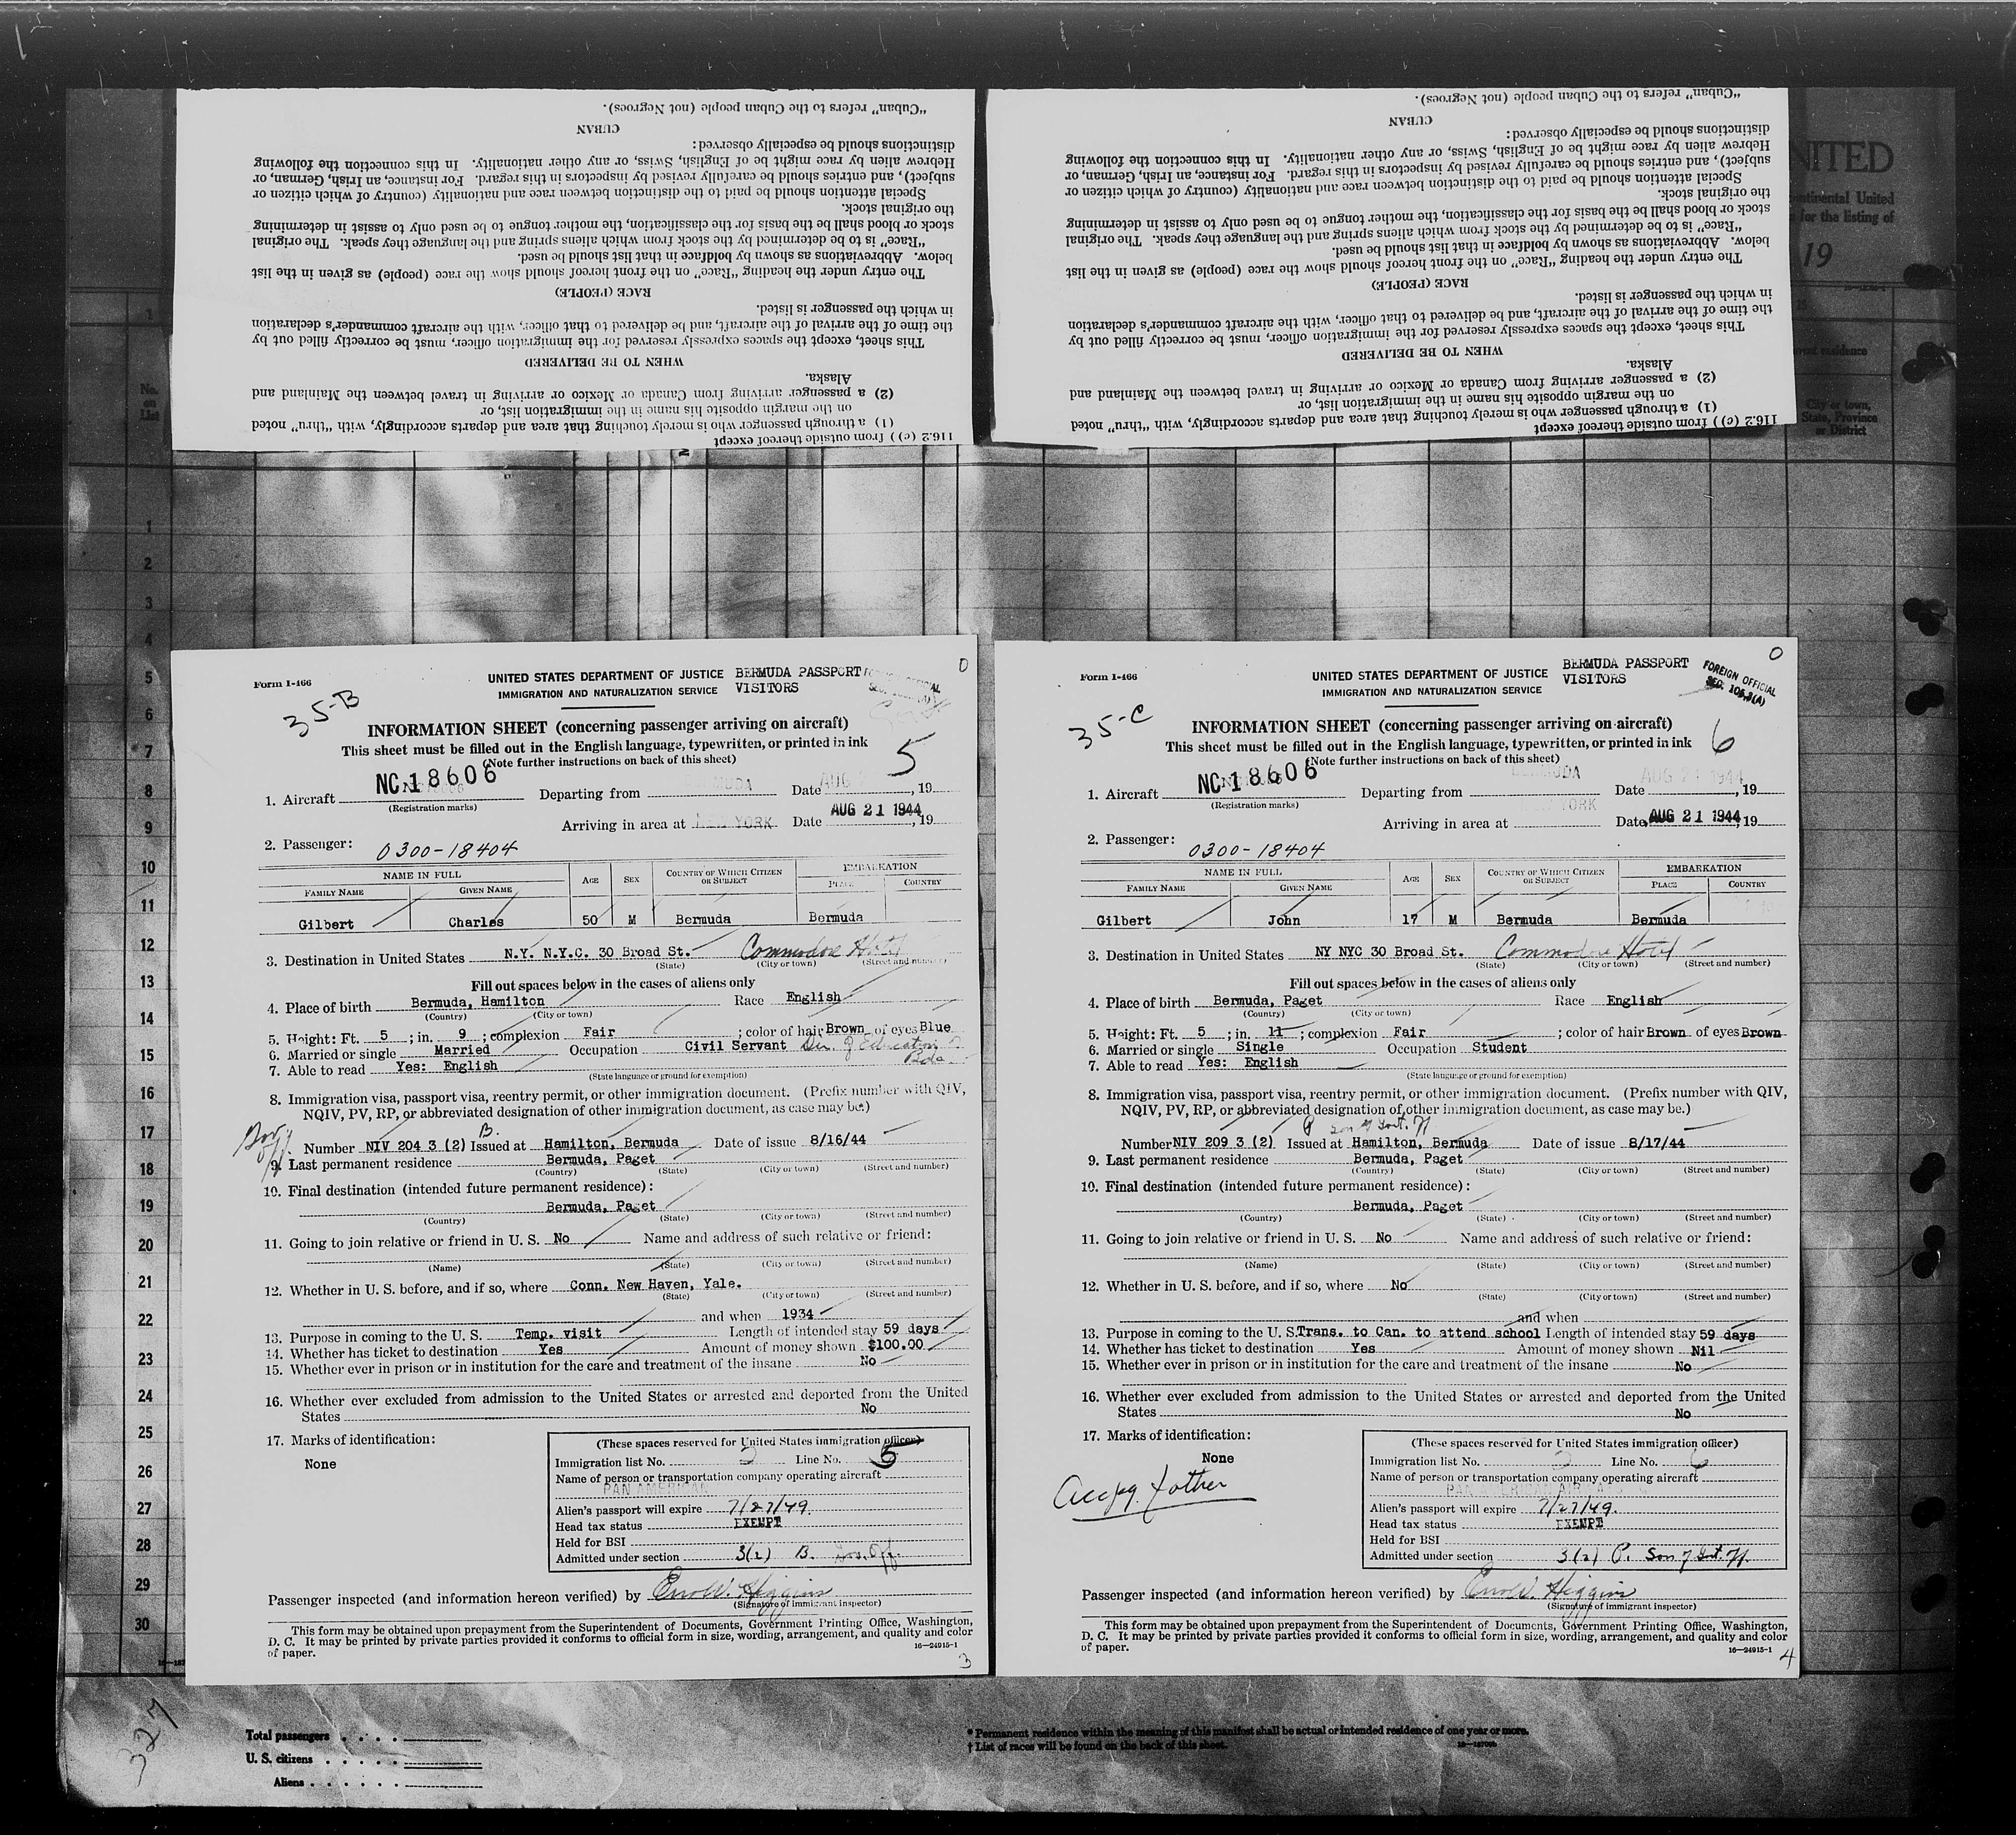 "Cuban" refers to the Cuban people (not Negroes).
CUBAN
distinctions should be especially observed:
Hebrew alien by race might be of English, Swiss, or any other nationality. In this connection the following
subject), and entries should be carefully revised by inspectors in this regard. For instance, an Irish, German, or
Special attention should be paid to the distinction between race and nationality (country of which citizen or
the original stock.
stock or blood shall be the basis for the classification, the mother tongue to be used only to assist in determining
"Race" is to be determined by the stock from which aliens spring and the language they speak. The original
below. Abbreviations as shown by boldface in that list should be used.
The entry under the heading "Race" on the front hereof should show the race (people) as given in the list
RACE (PEOPLE)
in which the passenger is listed.
the time of the arrival of the aircraft, and be delivered to that officer, with the aircraft commander's declaration
This sheet, except the spaces expressly reserved for the immigration officer, must be correctly filled out by
WHEN TO BE DELIVERED
Alaska.
(2) a passenger arriving from Canada or Mexico or arriving in travel between the Mainland and
on the margin opposite his name in the immigration list, or
(1) a through passenger who is merely touching that area and departs accordingly, with "thru" noted
116.2 (c)) from outside thereof except
"Cuban" refers to the Cuban people (not Negroes).
CUBAN
distinctions should be especially observed:
Hebrew alien by race might be of English, Swiss, or any other nationality. In this connection the following
subject), and entries should be carefully revised by inspectors in this regard. For instance, an Irish, German, or
Special attention should be paid to the distinction between race and nationality (country of which citizen or
the original stock.
stock or blood shall be the basis for the classification, the mother tongue to be used only to assist in determining
"Race" is to be determined by the stock from which aliens spring and the language they speak. The original
below. Abbreviations as shown by boldface in that list should be used.
The entry under the heading "Race" on the front hereof should show the race (people) as given in the list
RACE (PEOPLE)
in which the passenger is listed.
the time of the arrival of the aircraft, and be delivered to that officer, with the aircraft commander's declaration
This sheet, except the spaces expressly reserved for the immigration officer, must be correctly filled out by
WHEN TO BE DELIVERED
Alaska.
(2) a passenger arriving from Canada or Mexico or arriving in travel between the Mainland and
on the margin opposite his name in the immigration list, or
(1) a through passenger who is merely touching that area and departs accordingly, with "thru" noted
116.2 (c)) from outside thereof except
NITED
ntinental United
for the listing of
19
residence
City or town,
State, Province
or District
No.
on
List
1
1
2
3
4
5
6
7
8
9
10
11
12
13
14
15
16
17
18
19
20
21
22
23
24
25
26
27
28
29
30
Form I-466
35-B
UNITED STATES DEPARTMENT OF JUSTICE BERMUDA PASSPORT
IMMIGRATION AND NATURALIZATION SERVICE VISITORS
0
INFORMATION SHEET (concerning passenger arriving on aircraft)
This sheet must be filled out in the English language, typewritten, or printed in ink 5
(Note further instructions on back of this sheet)
1. Aircraft NC 18606 Departing from Date , 19
(Registration marks)
Arriving in area at NEW YORK Date AUG 21 1944, 19
2. Passenger: 0300-18404
NAME IN FULL AGE SEX COUNTRY OF WHICH CITIZEN OR SUBJECT EMBARKATION
FAMILY NAME GIVEN NAME PLACE COUNTRY
Gilbert Charles 50 M Bermuda Bermuda
3. Destination in United States N.Y. N.Y.C. 30 Broad St. Commodore Hotel
(State) (City or town) (Street and number)
Fill out spaces below in the cases of aliens only
4. Place of birth Bermuda, Hamilton Race English
(Country) (City or town)
5. Height: Ft. 5 ; in. 9 ; complexion Fair ; color of hair Brown of eyes Blue
6. Married or single Married Occupation Civil Servant Dir. of Education Bda
7. Able to read Yes: English
(State language or ground for exemption)
8. Immigration visa, passport visa, reentry permit, or other immigration document. (Prefix number with QIV,
NQIV, PV, RP, or abbreviated designation of other immigration document, as case may be.)
Gov. Off. B.
Number NIV 204 3 (2) Issued at Hamilton, Bermuda Date of issue 8/16/44
9. Last permanent residence Bermuda, Paget
(Country) (State) (City or town) (Street and number)
10. Final destination (intended future permanent residence):
Bermuda, Paget
(Country) (State) (City or town) (Street and number)
11. Going to join relative or friend in U. S. No Name and address of such relative or friend:
(Name) (State) (City or town) (Street and number)
12. Whether in U. S. before, and if so, where Conn. New Haven, Yale.
(State) (City or town) (Street and number)
and when 1934
13. Purpose in coming to the U. S. Temp. visit Length of intended stay 59 days
14. Whether has ticket to destination Yes Amount of money shown $100.00
15. Whether ever in prison or in institution for the care and treatment of the insane No
16. Whether ever excluded from admission to the United States or arrested and deported from the United
States No
17. Marks of identification:
None
(These spaces reserved for United States immigration officer)
Immigration list No. 2 Line No. 5
Name of person or transportation company operating aircraft
PAN AMERICAN
Alien's passport will expire 7/27/49.
Head tax status EXEMPT
Held for BSI
Admitted under section 3(2) B. Gov. Off.
Passenger inspected (and information hereon verified) by Errol W. Higgins
(Signature of immigrant inspector)
This form may be obtained upon prepayment from the Superintendent of Documents, Government Printing Office, Washington,
D. C. It may be printed by private parties provided it conforms to official form in size, wording, arrangement, and quality and color
of paper. 16—24915-1
3
Form I-466
35-C
UNITED STATES DEPARTMENT OF JUSTICE BERMUDA PASSPORT
IMMIGRATION AND NATURALIZATION SERVICE VISITORS
0
FOREIGN OFFICIAL
SEC. 105.3(A)
INFORMATION SHEET (concerning passenger arriving on aircraft)
This sheet must be filled out in the English language, typewritten, or printed in ink 6
(Note further instructions on back of this sheet)
1. Aircraft NC 18606 Departing from BERMUDA Date AUG 21 1944, 19
(Registration marks)
Arriving in area at NEW YORK Date AUG 21 1944, 19
2. Passenger: 0300-18404
NAME IN FULL AGE SEX COUNTRY OF WHICH CITIZEN OR SUBJECT EMBARKATION
FAMILY NAME GIVEN NAME PLACE COUNTRY
Gilbert John 17 M Bermuda Bermuda
3. Destination in United States NY NYC 30 Broad St. Commodore Hotel
(State) (City or town) (Street and number)
Fill out spaces below in the cases of aliens only
4. Place of birth Bermuda, Paget Race English
(Country) (City or town)
5. Height: Ft. 5 ; in. 11 ; complexion Fair ; color of hair Brown of eyes Brown
6. Married or single Single Occupation Student
7. Able to read Yes: English
(State language or ground for exemption)
8. Immigration visa, passport visa, reentry permit, or other immigration document. (Prefix number with QIV,
NQIV, PV, RP, or abbreviated designation of other immigration document, as case may be.)
Number NIV 209 3 (2) Issued at Hamilton, Bermuda Date of issue 8/17/44
9. Last permanent residence Bermuda, Paget
(Country) (State) (City or town) (Street and number)
10. Final destination (intended future permanent residence):
Bermuda, Paget
(Country) (State) (City or town) (Street and number)
11. Going to join relative or friend in U. S. No Name and address of such relative or friend:
(Name) (State) (City or town) (Street and number)
12. Whether in U. S. before, and if so, where No
(State) (City or town) (Street and number)
and when
13. Purpose in coming to the U. S. Trans. to Can. to attend school Length of intended stay 59 days
14. Whether has ticket to destination Yes Amount of money shown Nil
15. Whether ever in prison or in institution for the care and treatment of the insane No
16. Whether ever excluded from admission to the United States or arrested and deported from the United
States No
17. Marks of identification:
None
Accpg. father
(These spaces reserved for United States immigration officer)
Immigration list No. 2 Line No. 6
Name of person or transportation company operating aircraft
Alien's passport will expire 7/27/49.
Head tax status EXEMPT
Held for BSI
Admitted under section 3(2) P. Son of
Passenger inspected (and information hereon verified) by Errol W. Higgins
(Signature of immigrant inspector)
This form may be obtained upon prepayment from the Superintendent of Documents, Government Printing Office, Washington,
D. C. It may be printed by private parties provided it conforms to official form in size, wording, arrangement, and quality and color
of paper. 16—24915-1
4
327
Total passengers
U. S. citizens
Aliens
* Permanent residence within the meaning of this manifest shall be actual or intended residence of one year or more.
† List of races will be found on the back of this sheet.